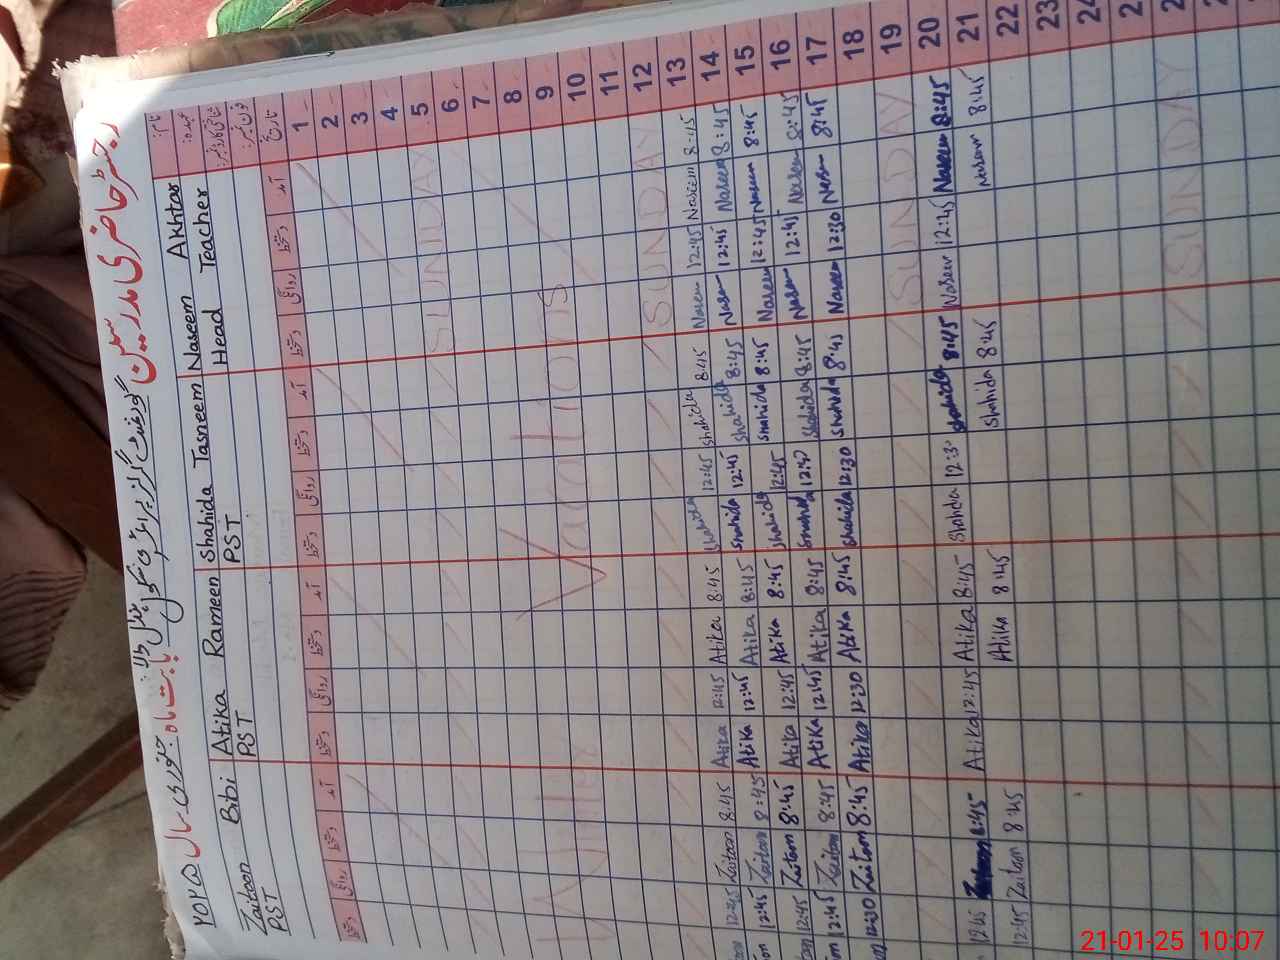 رجسٹر حاضری مدرسین گورنمنٹ گرلز پرائمری سکول
بابت ماہ: جنوری سال ۲۰۲۵
نام: Naseem Akhtar Shahida Tasneem Atika Rameen Zaitoon Bibi
عہدہ: Head Teacher PST PST PST
تاریخ آمد دستخط روانگی دستخط آمد دستخط روانگی دستخط آمد دستخط روانگی دستخط آمد دستخط روانگی دستخط
1
2
3
4
5 SUNDAY
6
7
8
9 Winter Vacations
10
11
12 SUNDAY
13
14 8:45 Naseem 12:45 Naseem 8:45 Shahida 12:45 Shahida 8:45 Atika 12:45 Atika 8:45 Zaitoon 12:45
15 8:45 Naseem 12:45 Naseem 8:45 Shahida 12:45 Shahida 8:45 Atika 12:45 Atika 8:45 Zaitoon 12:45
16 8:45 Naseem 12:45 Naseem 8:45 Shahida 12:45 Shahida 8:45 Atika 12:45 Atika 8:45 Zaitoon 12:45
17 8:45 Naseem 12:45 Naseem 8:45 Shahida Shahida 8:45 Atika 12:45 Atika 8:45 Zaitoon 12:45
18 8:45 Naseem 12:30 Naseem 8:45 Shahida 12:30 Shahida 8:45 Atika 12:30 Atika 8:45 Zaitoon 12:30
19 SUNDAY
20 8:45 Naseem 12:45 Naseem 8:45 Shahida 12:3 Shahida 8:45 Atika 12:45 Atika 8:45 Zaitoon 12:45
21 8:45 Naseem 8:45 Shahida 8:45 Atika 8:45 Zaitoon 12:45
22
23
24
SUNDAY
21-01-25 10:07